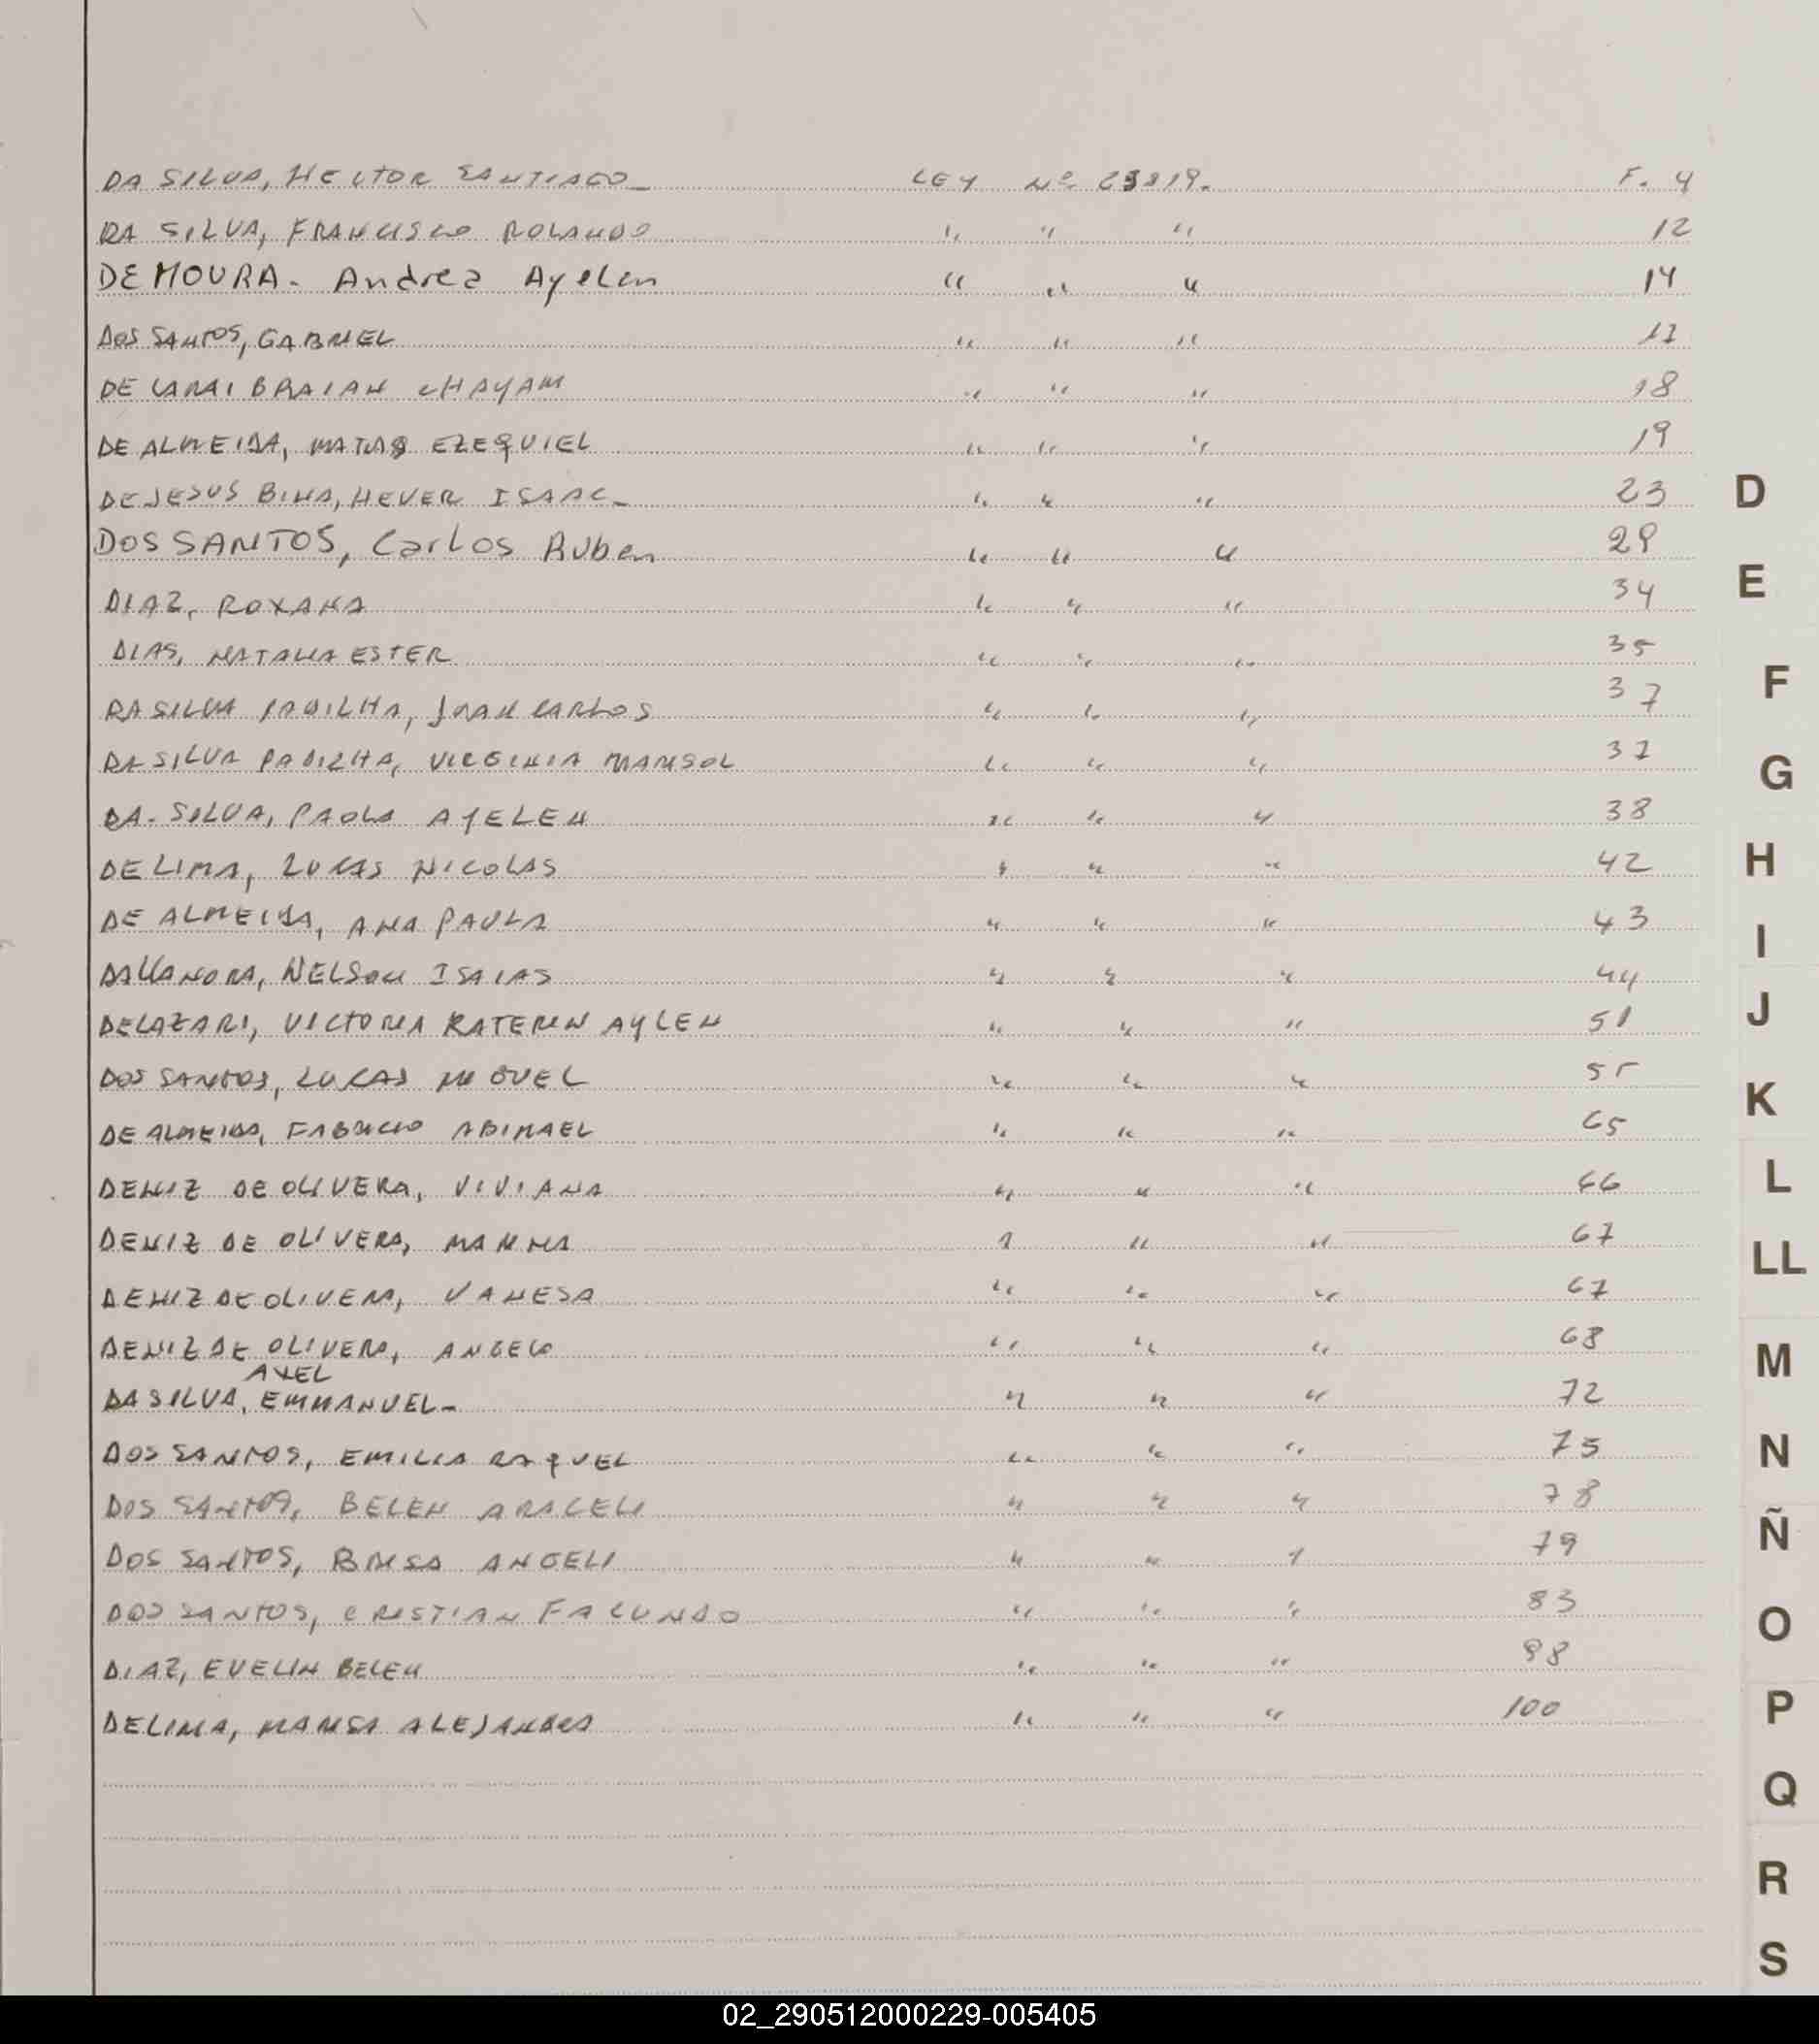 DA SILVA, HECTOR SANTIAGO_ LEY Nº 23819. F. 4
DA SILVA, FRANCISCO ROLANDO " " " 12
DE MOURA. Andrea Ayelen " " " 14
DOS SANTOS, GABRIEL " " " 17
DE BRAIAN CHAYAM " " " 18
DE ALMEIDA, MATIAS EZEQUIEL " " " 19
DE JESUS BINA, HEVER ISAAC_ " " " 23
DOS SANTOS, Carlos Ruben " " " 29
DIAZ, ROXANA " " " 34
DIAS, NATALIA ESTER " " " 35
DA SILVA PADILHA, JUAN CARLOS " " " 37
DA SILVA PADILHA, VIRGINIA MARISOL " " " 37
DA. SILVA, PAOLA AYELEN " " " 38
DE LIMA, LUCAS NICOLAS " " " 42
DE ALMEIDA, ANA PAULA " " " 43
DALLANORA, NELSON ISAIAS " " " 44
DELAZARI, VICTORIA KATERIN AYLEN " " " 51
DOS SANTOS, LUCAS MIGUEL " " " 55
DE ALMEIDA, FABRICIO ABIMAEL " " " 65
DENIZ DE OLIVERA, VIVIANA " " " 66
DENIZ DE OLIVERA, MARINA " " " 67
DENIZ DE OLIVERA, VANESA " " " 67
DENIZ DE OLIVERA, ANGELO " " " 68
AXEL
DA SILVA, EMMANUEL- " " " 72
DOS SANTOS, EMILIA RAQUEL " " " 75
DOS SANTOS, BELEN ARACELI " " " 78
DOS SANTOS, BRISA ANGELI " " " 79
DOS SANTOS, CRISTIAN FACUNDO " " " 83
DIAZ, EVELIN BELEN " " " 98
DE LIMA, MARISA ALEJANDRA " " " 100
D
E
F
G
H
I
J
K
L
LL
M
N
Ñ
O
P
Q
R
S
02_290512000229-005405